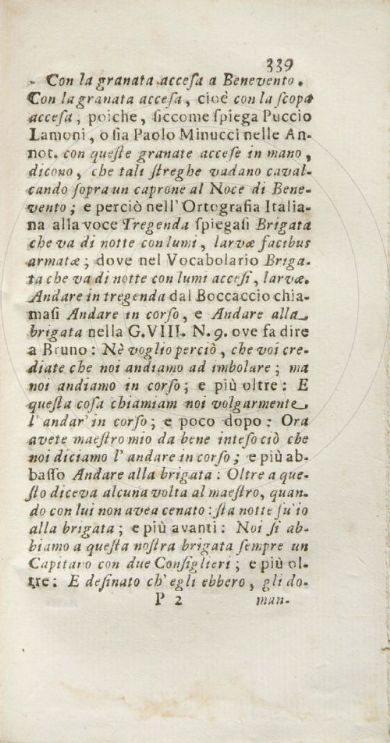 339
- Con la granata accesa a Benevento.
Con la granata accesa, cioè con la scopa
accesa, poiche, siccome spiega Puccio
Lamoni, o sia Paolo Minucci nelle An-
not. con queste granate accese in mano,
dicono, che tali streghe vadano caval-
cando sopra un caprone al Noce di Bene-
vento; e perciò nell'Ortografia Italia-
na alla voce Tregenda spiegasi Brigata
che va di notte con lumi, larvæ facibus
armatæ; dove nel Vocabolario Briga-
ta che va di notte con lumi accesi, larvæ.
Andare in tregenda dal Boccaccio chia-
masi Andare in corso, e Andare alla
brigata nella G.VIII. N.9. ove fa dire
a Bruno: Nè voglio perciò, che voi cre-
diate che noi andiamo ad imbolare; ma
noi andiamo in corso; e più oltre: E
questa cosa chiamiam noi volgarmente
l'andar' in corso; e poco dopo: Ora
avete maestro mio da bene inteso ciò che
noi diciamo l'andare in corso; e più ab-
basso Andare alla brigata: Oltre a que-
sto diceva alcuna volta al maestro, quan-
do con lui non avea cenato: sta notte fu' io
alla brigata; e più avanti: Noi si ab-
biamo a questa nostra brigata sempre un
Capitaro con due Consiglieri; e più ol-
tre: E desinato ch'egli ebbero, gli do-
P 2 man-